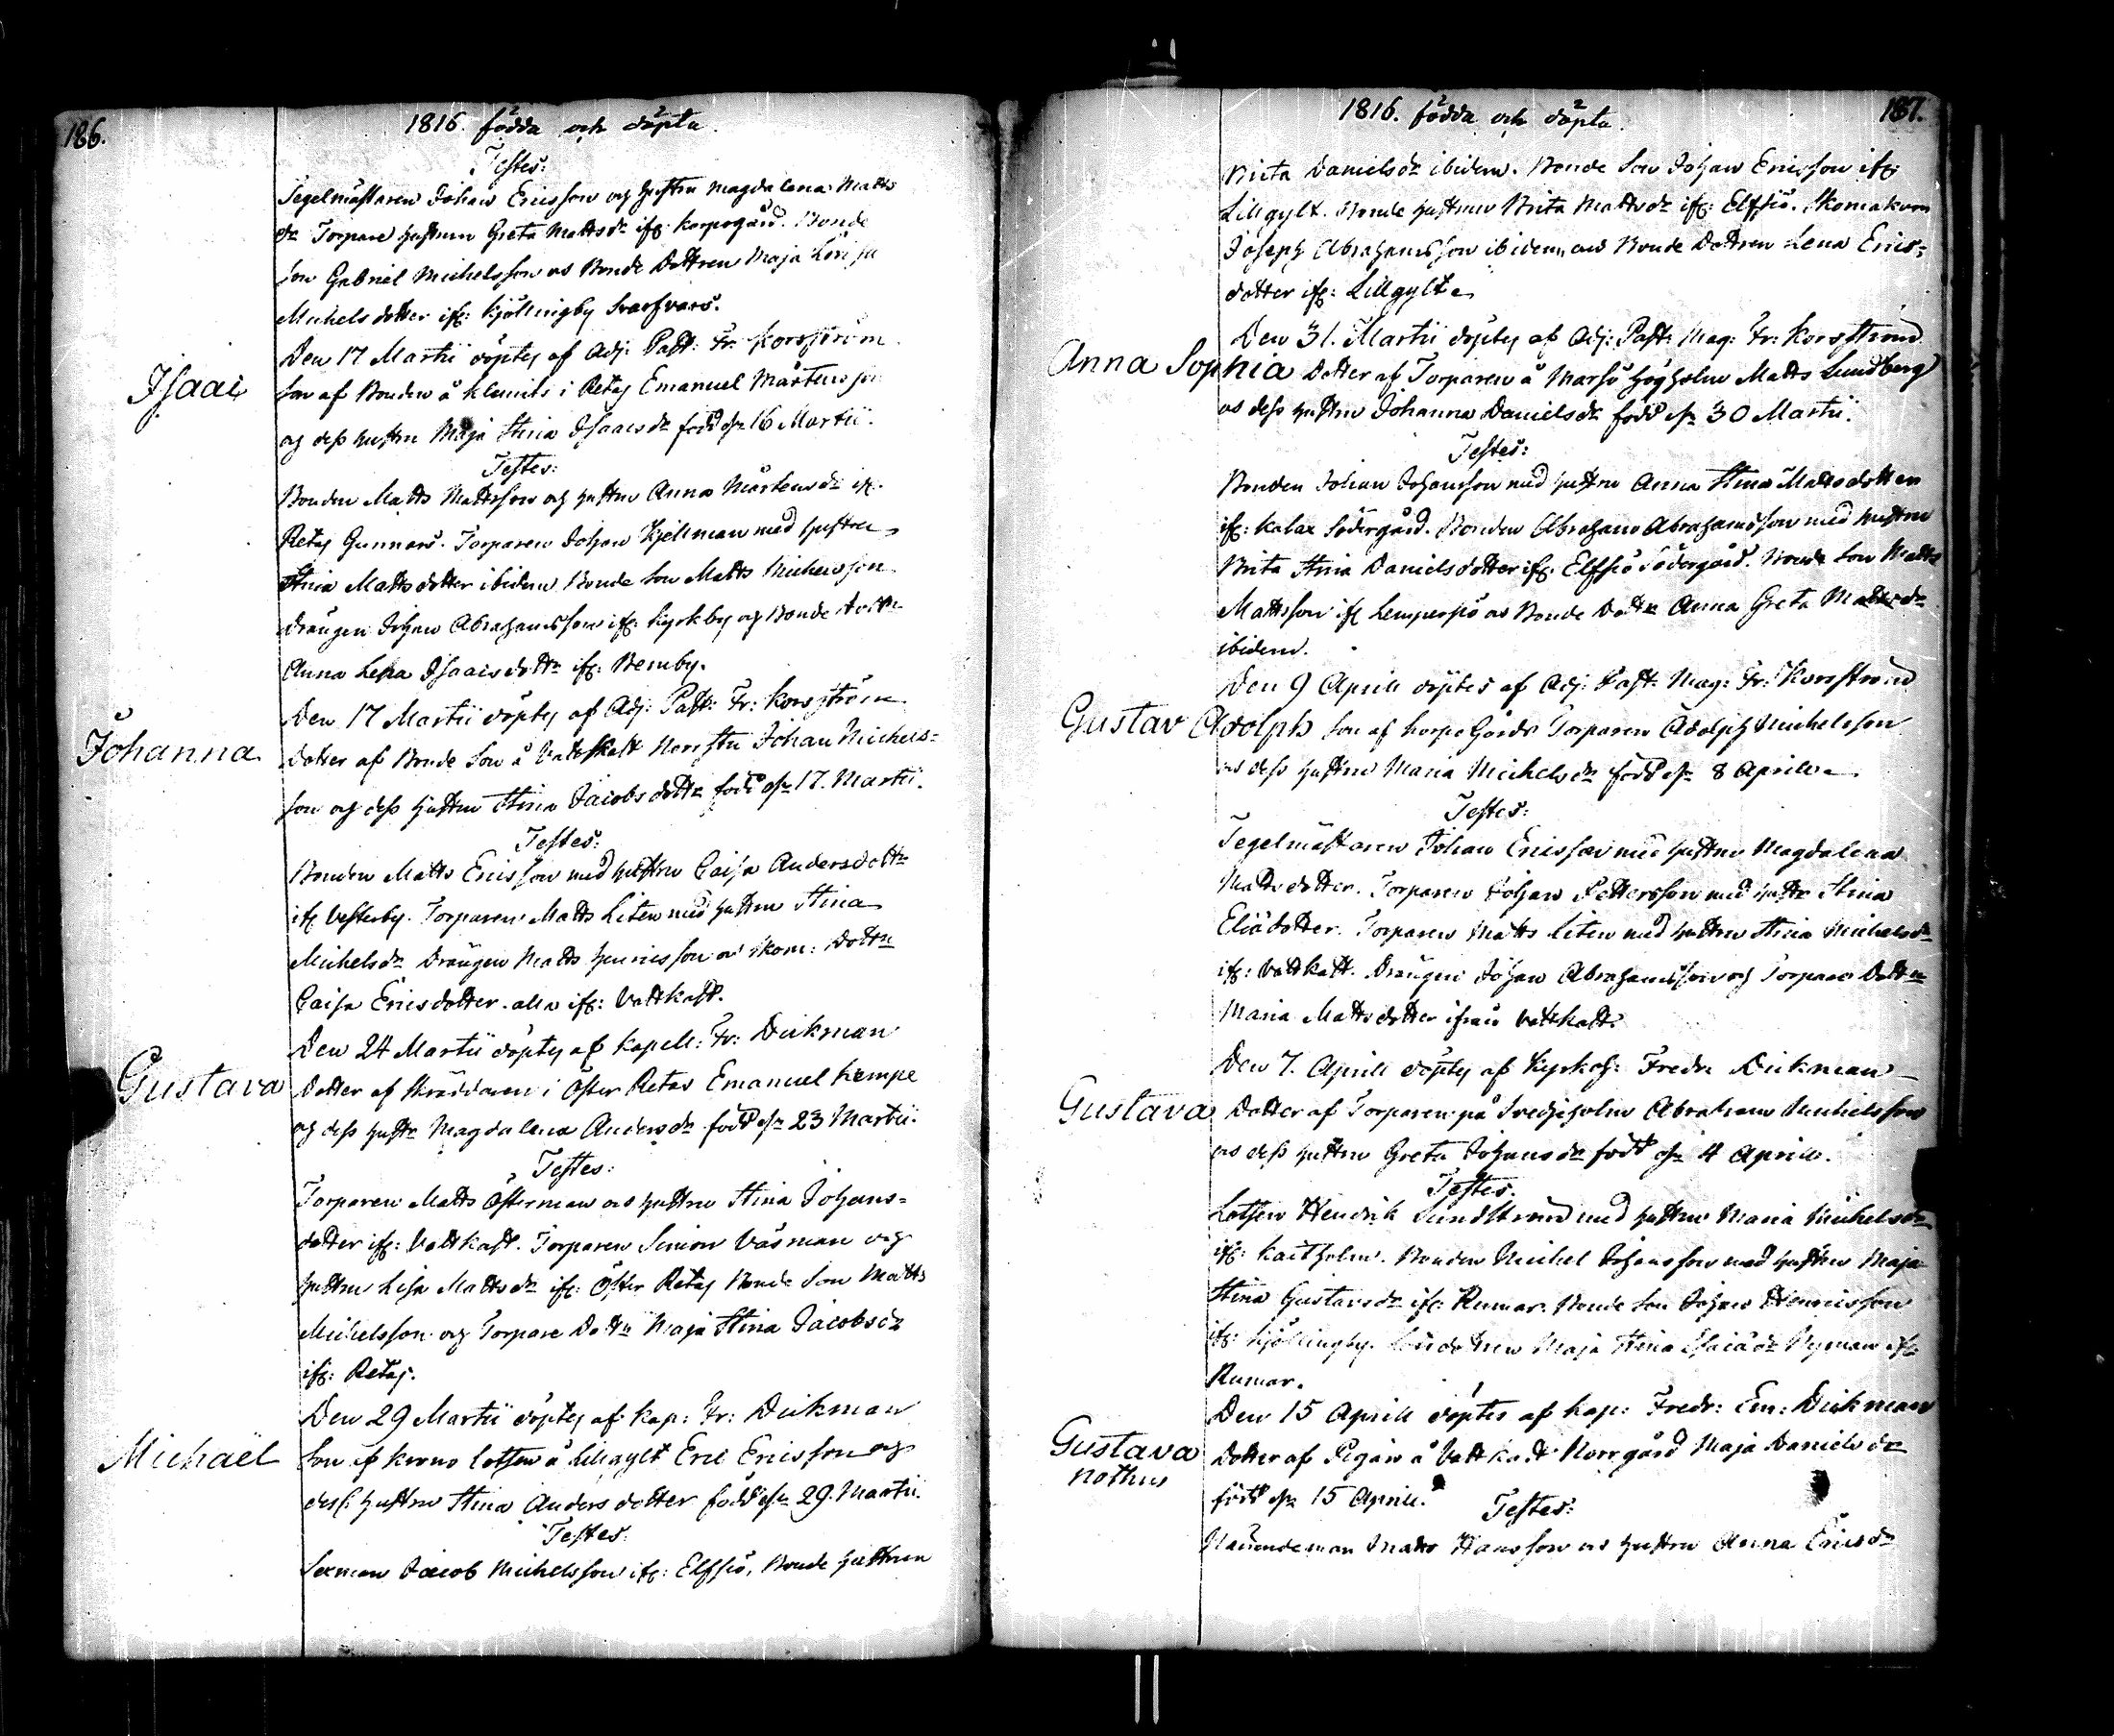 186.
1816. födda och döpta.
Testes:
Tegelmästaren Johan Ericsson och hustru Magdalena Matts
dr Torpare hustrun Greta Mattsdr ifr: Korpogård. Bonde
son Gabriel Michelsson och Bonde Dottren Maja Lovisa
Michelsdotter ifr: Kjöllingby Svarfvars.
Den 17 Martii döptes af Adj: Past: Fr: Korsström
Isaac
son af Bonden å Klemits i Retas Emanuel Mårtensson
och dess hustru Maja Stina Isaacsdr född dn 16 Martii.
Testes:
Bonden Matts Mattsson och hustru Anna Mårtensdr ifr.
Retas Gunnars. Torparen Johan Kjellman med hustru
Stina Mattsdotter ibidem Bonde son Matts Michelsson
Drängen Johan Abrahamsson ifr: Kyrkby och Bonde dottr
Anna Lena Isaacsdottr ifr: Bemby.
Den 17 Martii döptes af Adj: Past: Fr: Korsström
Johanna
dotter af Bonde son å Vattkast Norrstu Johan Michels=
son och dess hustru Stina Jacobsdottr född dn 17. Martii.
Testes:
Bonden Matts Ericsson med hustru Caisa Andersdottr
ifr Vesterby. Torparen Matts Liten med hustru Stina
Michelsdr Drängen Matts Henricsson och skom: Dottr
Caisa Ericsdotter. alla ifr: Vattkast.
Den 24 Martii döptes af Kapell: Fr: Dickman
Gustava
Dotter af Skräddaren i Öster Retas Emanuel Kempe
och dess hustr Magdalena Andersdr född dn 23 Martii.
Testes:
Torparen Matts Österman och hustru Stina Johans=
dotter ifr: Vattkast. Torparen Simon Våsman och
hustru Lisa Mattsdr ifr: Öster Retas Bonde son Matts
Michelsson och Torpare Dottr Maja Stina Jacobsdr
ifr: Retas.
Den 29 Martii döptes af Kap: Fr: Dickman
Michaël
Son af Krono Lotsen å Lillgylt Eric Ericsson och
dess hustru Stina Andersdotter född dn 29. Martii.
Testes:
Sexman Jacob Michelsson ifr: Elfsjö, Bonde hustrun
187.
1816. födda och döpta.
Brita Danielsdr ibidem. Bonde Son Johan Ericsson ifr.
Lillgylt. Bonde hustrun Brita Mattsdr ifr: Elfsjö. Skomakaren
Joseph Abrahamsson ibidem och Bonde Dottren Lena Erics=
dotter ifr: Lillgylt.
Den 31. Martii döptes af Adj: Past: Mag: Fr: Korsström
Anna Sophia
Dotter af Torparen å Marsö Högholm Matts Lundberg
och dess hustru Johanna Danielsdr född dn 30 Martii.
Testes:
Bonden Johan Johansson med hustru Anna Stina Mattsdotter
ifr: Kalax Södergård. Bonden Abraham Abrahamsson med hustru
Brita Stina Danielsdotter ifr: Elfsjö Södergård. Bonde Son Matts
Mattsson ifr Lempersjö och Bonde Dottr Anna Greta Mattsdr
ibidem.
Den 9 Aprill döptes af Adj: Past: Mag: Fr: Korsström
Gustav Adolph
son af Korpo Gårds Torparen Adolph Michelsson
och dess hustru Maria Michelsdr född dn 8 Aprill.
Testes:
Tegelmästaren Johan Ericsson med hustru Magdalena
Mattsdotter. Torparen Johan Pettersson med hustr Stina
Eliädotter. Torparen Matts Liten med hustru Stina Michelsdr
ifr: Vattkast. Drängen Johan Abrahamsson och Torpare Dottr
Maria Mattsdotter ifrån Vattkast.
Den 7. Aprill döptes af Kyrkoh: Fredr: Dickman
Gustava
Dotter af Torparen på Svedjeholm Abraham Michelsson
och dess hustru Greta Johansdr född dn 4 Aprill.
Testes:
Lotsen Hendrik Sundström med hustru Maria Michelsdr
ifr: Kaitholm. Bonden Michel Johansson med hustru Maja
Stina Gustavsdr ifr: Rumar. Bonde son Johan Henricsson
ifr: Kjöllingby. Maja Stina Nyman ifr
Rumar.
Den 15 Aprill döptes af Kap: Fredr: Em: Dickman
Gustava
nothus
Dotter af Pigan å Vattkast Norrgård Maja Danielsdr
född dn 15 Aprill.
Testes:
Nämndeman Matts Hansson och hustru Anna Ericsdr